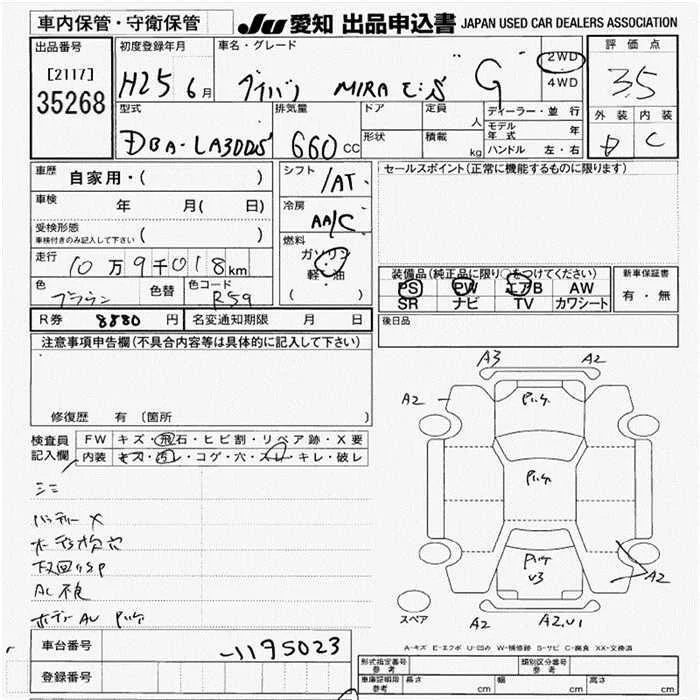 車内保管・守衛保管 JU 愛知 出品申込書 JAPAN USED CAR DEALERS ASSOCIATION
出品番号 初度登録年月 車名・グレード 2WD 4WD 評価点
[2117] 35268 H25 6月 ダイハツ MIRA E:S "G" 3.5
型式 排気量 ドア 定員 人 ディーラー・並行 外装 内装
DBA-LA300S 660 cc 形状 積載 kg モデル年式 年 ハンドル 左・右 D C
車歴 自家用・( )
シフト /AT
セールスポイント(正常に機能するものに限ります)
車検 年 月( 日)
冷房 AA/C
受検形態 車検付きのみ記入して下さい ( )
燃料 ガソリン・軽・油 ( )
走行 10万9千018km
色 ブラウン 色替 色コード R59
装備品(純正品に限り○をつけてください) 新車保証書
PS PW エアB AW 有・無
SR ナビ TV カワシート
R券 8880 円 名変通知期限 月 日
後日品
注意事項申告欄(不具合内容等は具体的に記入して下さい)
修復歴 有 (箇所 )
検査員記入欄 FW キズ・飛石・ヒビ割・リペア跡・X要
内装 キズ・汚レ・コゲ・穴・スレ・キレ・破レ
バッテリー X
下回りSP
AC不良
A3 A2
A2
A2
A2 A2,U1
スペア
A-キズ E-エクボ U-凹ミ W-補修跡 S-サビ C-腐食 XX-交換済
車台番号 -1195023
登録番号
形式指定番号 参考 類別区分番号 参考
車庫証明用 参考 長さ cm 幅 cm 高さ cm